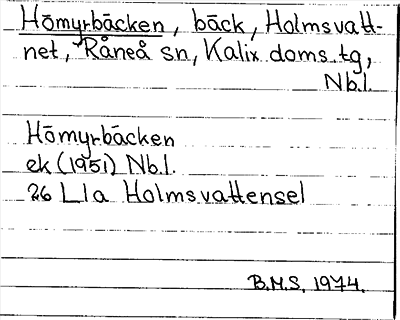 Hömyrbäcken, bäck, Holmsvatt-
net, Råneå sn, Kalix doms. tg,
Nb.l.
Hömyrbäcken
ek (1951) Nb.l.
26 L1a Holmsvattensel
B.M.S. 1974.